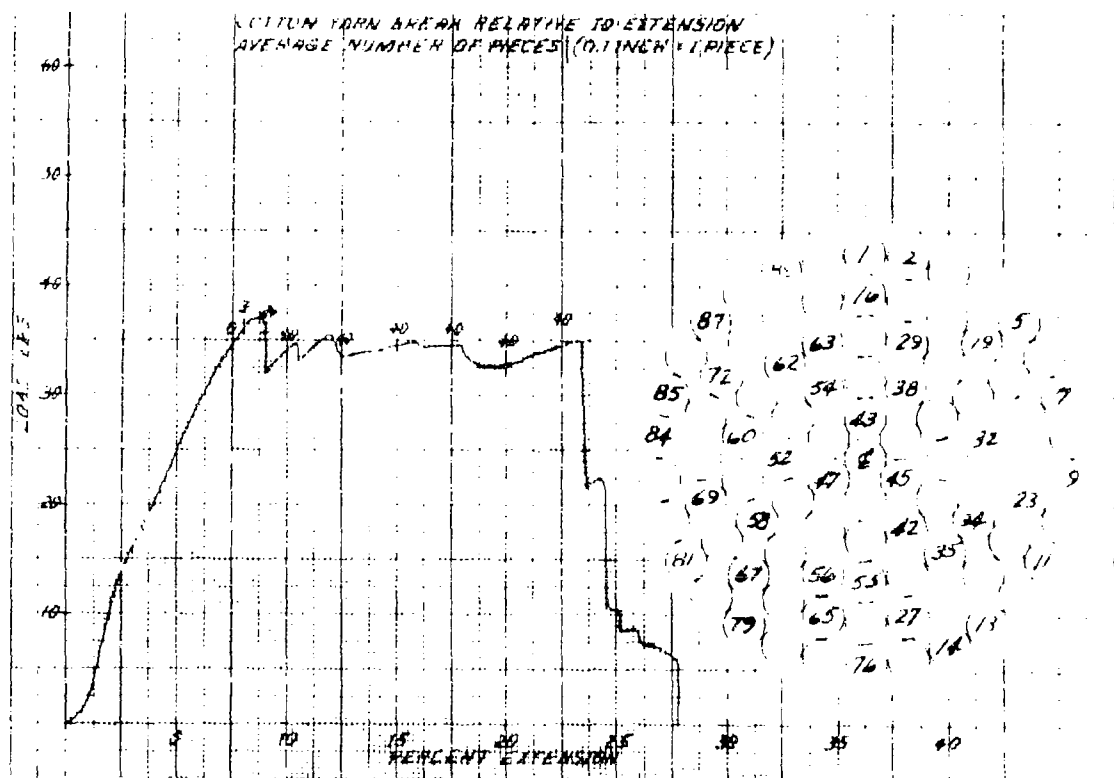 COTTON YARN BREAK RELATIVE TO EXTENSION
AVERAGE NUMBER OF PIECES (0.1 INCH = 1 PIECE)
60
50
40
30
20
10
LOAD LBS
3
40
40
40
40
40
5
10
15
20
25
30
35
40
PERCENT EXTENSION
1
2
16
87
63
29
19
5
62
72
54
38
85
7
43
84
60
32
52
47
45
9
69
23
58
42
34
35
81
11
67
56
55
79
65
27
13
14
76